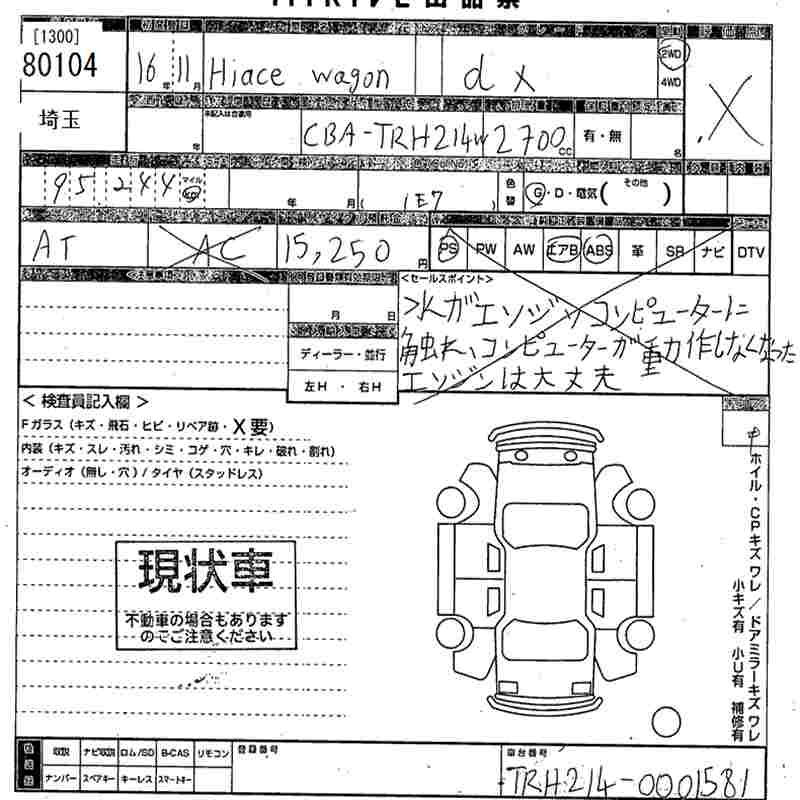 [1300]
80104
埼玉
16年 11月 Hiace wagon d x
2WD
4WD
X
年
CBA-TRH214W 2700 CC
有・無
名
95,244 マイル km
年 月( 1E7 )
色替
G・D・電気( その他 )
AT AC 15,250 円
PS PW AW エアB ABS 革 SR ナビ DTV
<セールスポイント>
水がエンジンコンピューターに
触れ、コンピューターが動作しなくなった
エンジンは大丈夫
月 日
ディーラー・並行
左H ・ 右H
< 検査員記入欄 >
Fガラス (キズ・飛石・ヒビ・リペア跡・X要)
内装 (キズ・スレ・汚れ・シミ・コゲ・穴・キレ・破れ・割れ)
オーディオ (無し・穴) / タイヤ (スタッドレス)
現状車
不動車の場合もあります
のでご注意ください
ホイル・CPキズ ワレ / ドアミラーキズ ワレ
小キズ有 小U有 補修有
取説 ナビ取説 ロム/SD B-CAS リモコン
ナンバー スペアキー キーレス スマートキー
登録番号
車台番号
TRH214-0001581